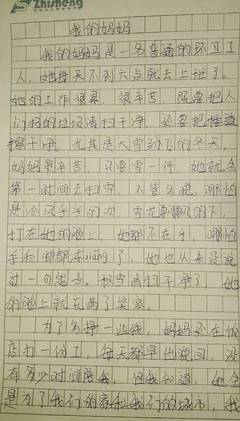 Zhisheng
我的妈妈
我的妈妈是一名普通的环卫工
人，她每天不到六点就去上班了。
她的工作很累，很辛苦，既要把人
们扔的垃圾清扫干净，还要把
擦干净。尤其是大雪的冬天，
妈妈更辛苦，只要雪一停，她就会
第一时间去扫雪，不管多晚，哪怕
是冷风的，雪花的下，
打在她的脸上，她都不在乎，哪怕
手和脚都冻了，她也从来没说
过一句怨言。每当清扫干净了，她
的脸上就充满了笑容。
为了多挣一些钱，妈妈还在饭
店打一份工，每天都早出晚回，没
有多少时间陪我，但我知道，她全
是为了我们的家和我们的城市，我